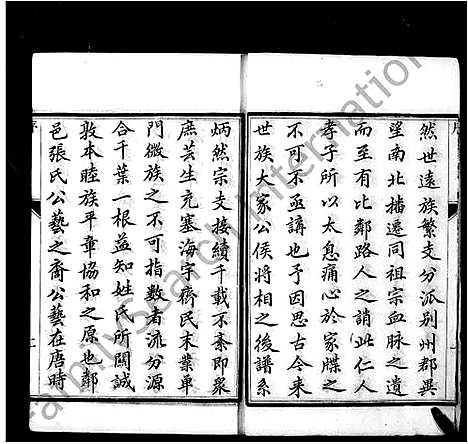 然世遠族繁支分派別州郡異
望南北播遷同祖宗血脉之遺
而至有比鄰路人之誚此仁人
孝子所以太息痛心於家牒之
不可不亟講也予因思古今來
世族大家公侯將相之後譜系
炳然宗支接續千載不紊即衆
庶芸生充塞海宇齊民末業單
門微族之不可指數者流分源
合千葉一根益知姓氏所關誠
敦本睦族平章協和之原也鄰
邑張氏公藝之裔公藝在唐時
FamilySearch International